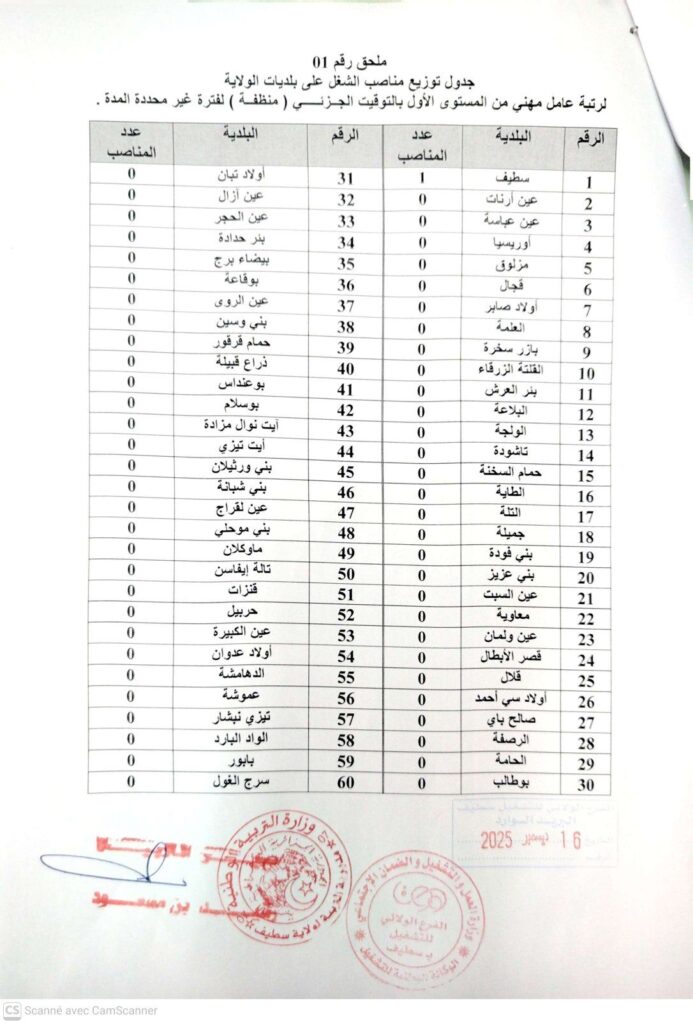 ملحق رقم 01
جدول توزيع مناصب الشغل على بلديات الولاية
لرتبة عامل مهني من المستوى الأول بالتوقيت الجزئي ( منظفة ) لفترة غير محددة المدة .
الرقم البلدية عدد المناصب الرقم البلدية عدد المناصب
1 سطيف 1 31 أولاد تبان 0
2 عين أرنات 0 32 عين أزال 0
3 عين عباسة 0 33 عين الحجر 0
4 أوريسيا 0 34 بئر حدادة 0
5 مزلوق 0 35 بيضاء برج 0
6 قجال 0 36 بوقاعة 0
7 أولاد صابر 0 37 عين الروى 0
8 العلمة 0 38 بني وسين 0
9 بازر سخرة 0 39 حمام قرقور 0
10 القلتة الزرقاء 0 40 ذراع قبيلة 0
11 بئر العرش 0 41 بوعنداس 0
12 البلاعة 0 42 بوسلام 0
13 الولجة 0 43 آيت نوال مزادة 0
14 تاشودة 0 44 أيت تيزي 0
15 حمام السخنة 0 45 بني ورثيلان 0
16 الطاية 0 46 بني شبانة 0
17 التلة 0 47 عين لقراج 0
18 جميلة 0 48 بني موحلي 0
19 بني فودة 0 49 ماوكلان 0
20 بني عزيز 0 50 تالة إيفاسن 0
21 عين السبت 0 51 قنزات 0
22 معاوية 0 52 حربيل 0
23 عين ولمان 0 53 عين الكبيرة 0
24 قصر الأبطال 0 54 أولاد عدوان 0
25 قلال 0 55 الدهامشة 0
26 أولاد سي أحمد 0 56 عموشة 0
27 صالح باي 0 57 تيزي نبشار 0
28 الرصفة 0 58 الواد البارد 0
29 الحامة 0 59 بابور 0
30 بوطالب 0 60 سرج الغول 0
الفرع الولائي للتشغيل سطيف
البريد الوارد
16 ديسمبر 2025
وزارة التربية الوطنية
لولاية سطيف
بن مسعود
وزارة العمل و التشغيل و الضمان الاجتماعي
الفرع الولائي
للتشغيل
بـ سطيف
الوكالة الوطنية للتشغيل
CS Scanné avec CamScanner